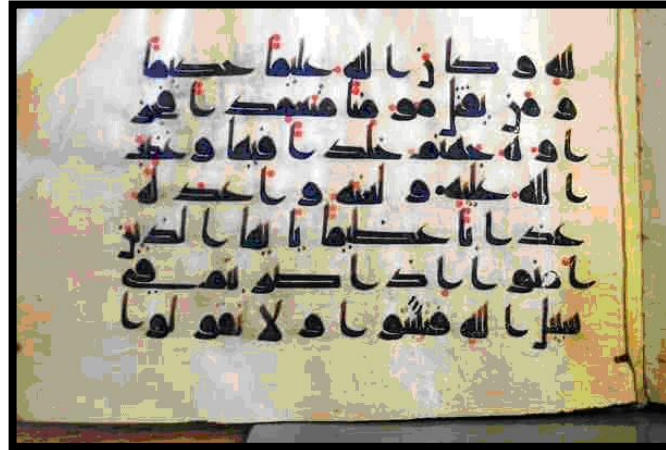 لله وكان الله عليما حكيما
ومن يقتل مومنا متعمدا فجز
اوه جهنم خلدا فيها وغضب
الله عليه ولعنه واعد له
عذابا عظيما يايها الذين
امنوا اذا ضربتم في
سبيل الله فتبينوا ولا تقولوا